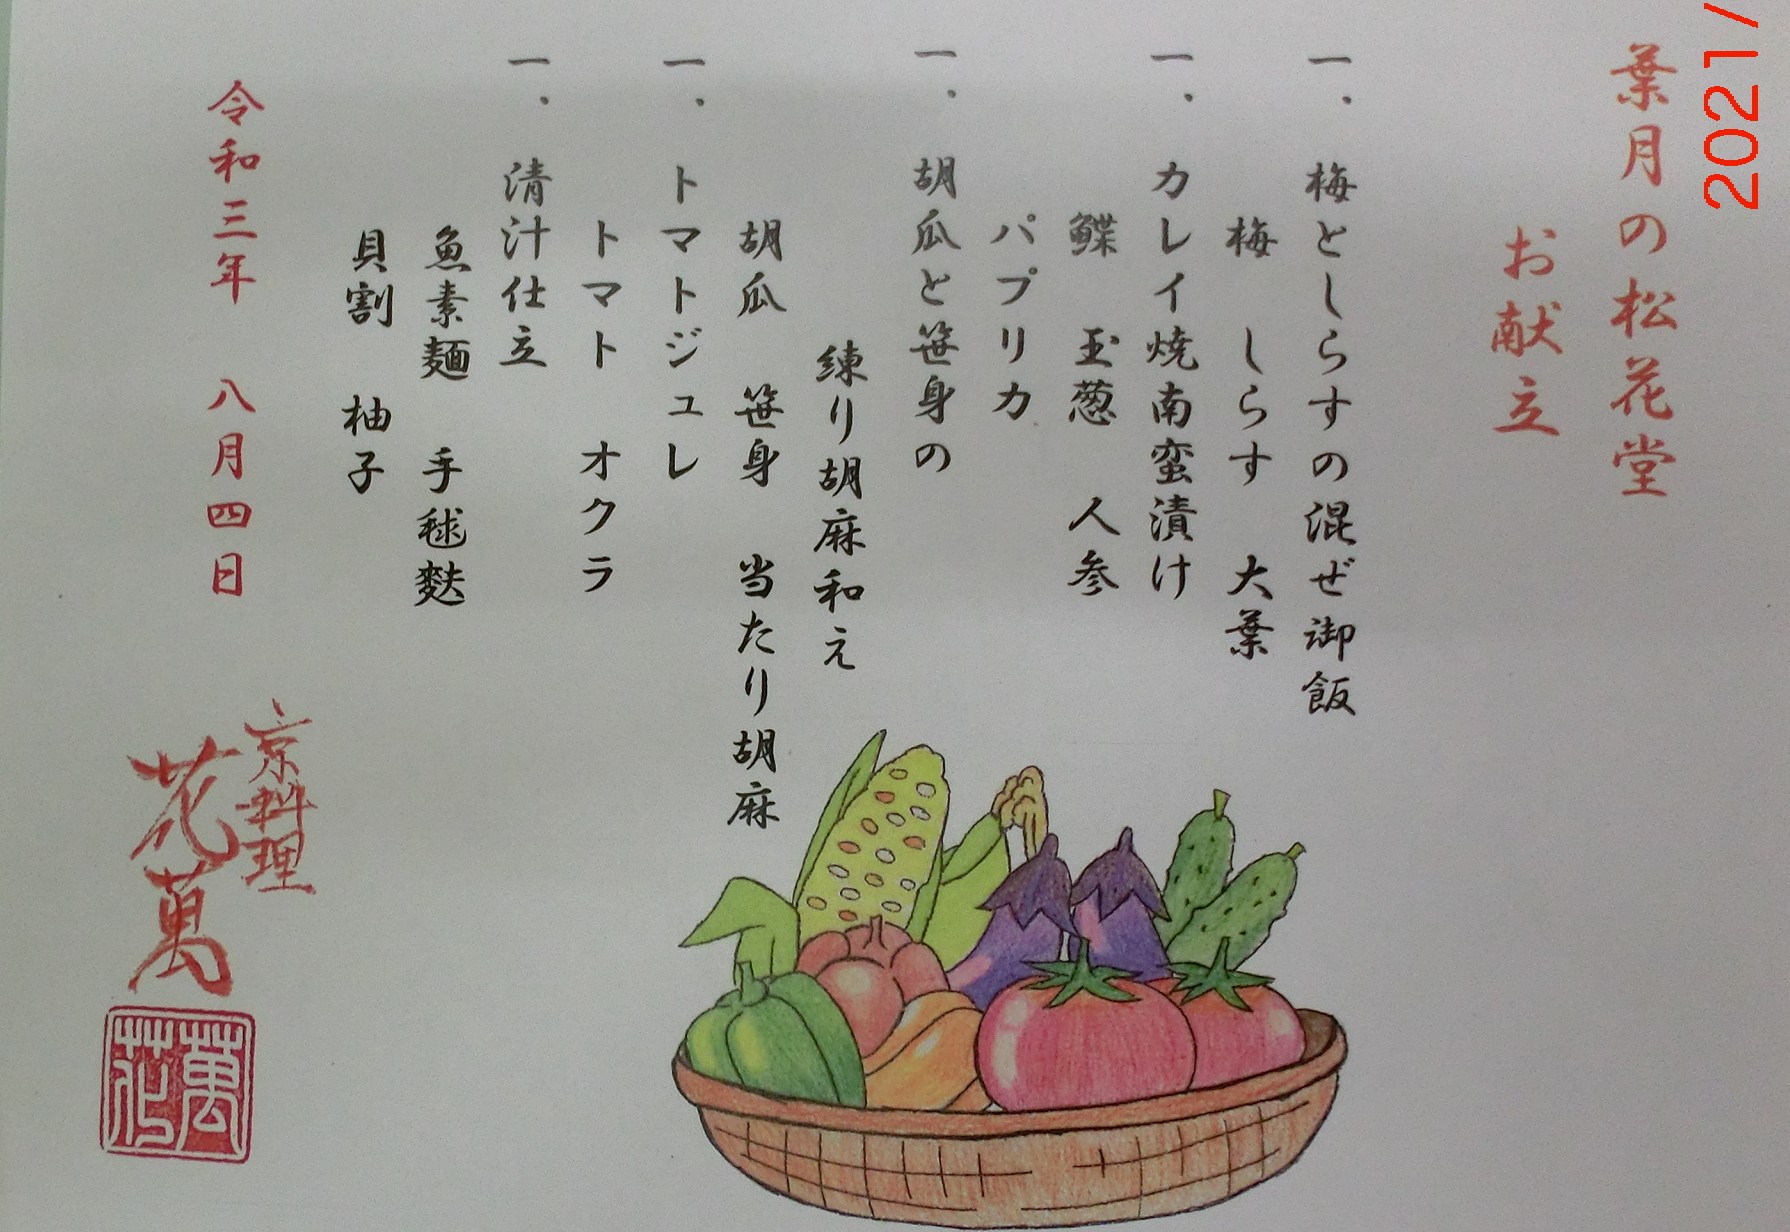 葉月の松花堂
お献立
一. 梅としらすの混ぜ御飯
梅 しらす 大葉
一. カレイ焼南蛮漬け
鰈 玉葱 人参
パプリカ
一. 胡瓜と笹身の
練り胡麻和え
胡瓜 笹身 当たり胡麻
一. トマトジュレ
トマト オクラ
一. 清汁仕立
魚素麺 手毬麩
貝割 柚子
令和三年 八月四日
京料理
花萬
萬花
2021/